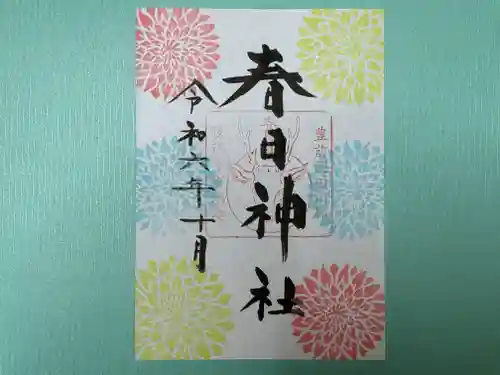 春日神社
令和六年十月